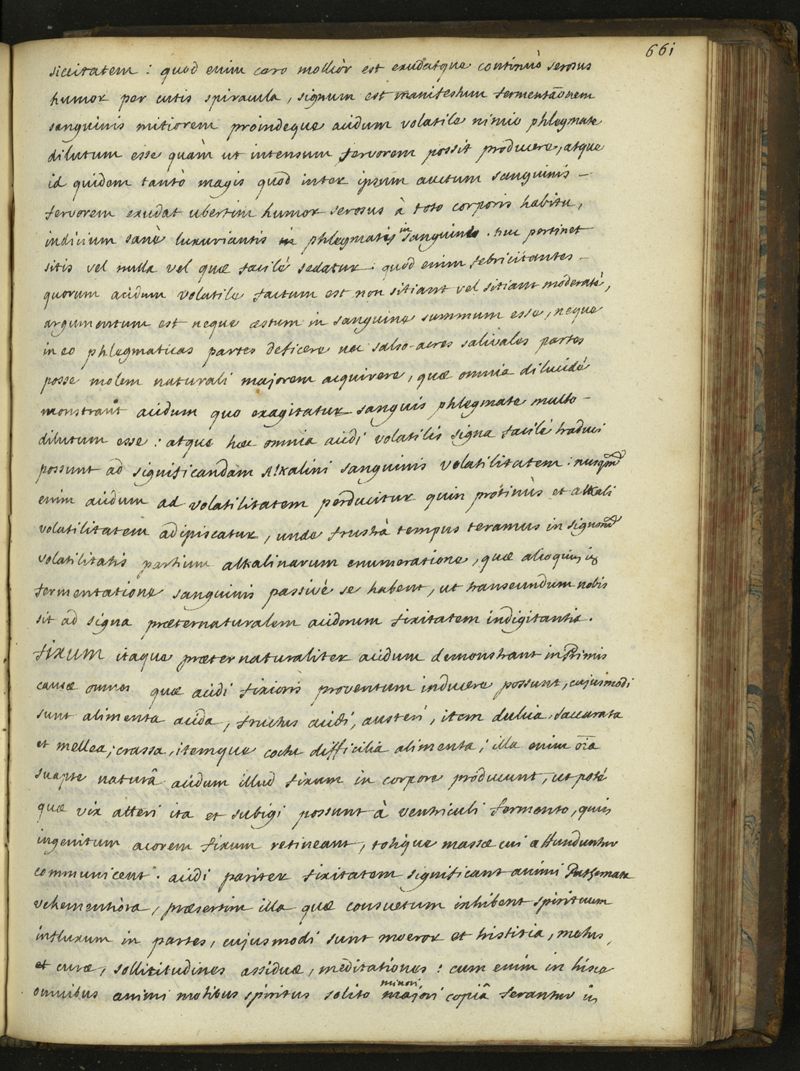 661
siccitatem : quod enim caro mollior est exudatque continuò serosus
humor per cutis spiracula, signum est manifestum fermentaõnem
sanguinis mitiorem proindeque acidum volatile nimio phlegmate
dilutum esse quàm ut intensum fervorem possit producere, atque
id quidem tantò magis quod inter ipsum auctum sanguinis -
fervorem exudat ubertim humor serosus à toto corporis habitu,
indicium sanè luxuriantis phlegmatis in sanguine. huc pertinet
sitis vel nulla vel quæ facilè sedatur : quod enim febricitantes -
quorum acidum volatile factum est non sitiant vel sitiant moderatè,
argumentum est neque æstum in sanguine summum esse, neque
in eo phlegmaticas partes deficere nec salso-acres salivales partes
posse molem naturali majorem acquirere, quæ omnia dilucidè
monstrant acidum quo exagitatur sanguis phlegmate multo -
dilutum esse : atque hæc omnia acidi volatilis signa facilè traduci
possunt ad significandam Alkalini sanguinis volatilitatem : nusqm̃
enim acidum ad volatilitatem perducitur quin protinùs et alkali
volatilitatem adipiscatur, unde frustrà tempus teramus in
volatilitatis partium alkalinarum enumeratione, quæ alioquin in
fermentatione sanguinis passivè se habent, ut transeundum nobis
sit ad signa præternaturalem acidorum fixitatem indigitantia.
FIXUM itaque præternaturaliter acidum demonstrant in Primis
causæ omnes quæ acidi fixioris proventum inducere possunt, cujusmodi
sunt alimenta acida, fructus acidi, austeri, item dulcia, saccarata
et mellea, crassa, itemque coctu difficilia alimenta ; illa enim oĩa
suapte naturâ acidum illud fixum in corpore producunt, ut potè
quæ vix atteri ita et subigi possunt à ventriculi fermento, quin
ingenitum acorem fixum retineant, totique massæ cui affunduntur
communicent. acidi pariter fixitatem significant animi Pathemata
vehementiora, præsertim illa quæ consuetum inhibent spirituum
influxum in partes, cujusmodi sunt mœror et tristitia, metus,
et curæ, sollicitudines assiduæ, meditationes : cum enim in hisce
omnibus animi motibus spiritus solito minori majori copiâ ferantur in